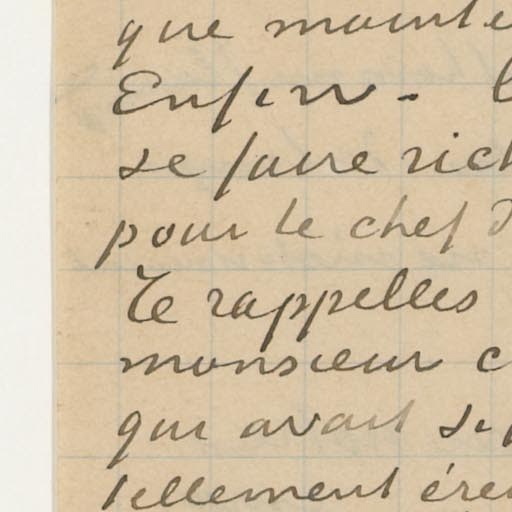 que mainte
Enfin.
se faire rich
pour le chef d
Te rappelles
monsieur c
qui avait si
tellement érei